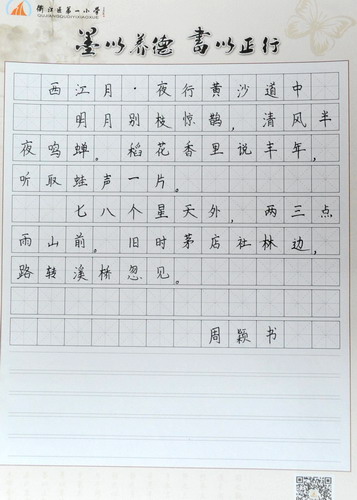 衢江区第一小学
QUJIANGQUDIYIXIAOXUE
墨以养德 書以正行
西江月·夜行黄沙道中
明月别枝惊鹊，清风半
夜鸣蝉。稻花香里说丰年，
听取蛙声一片。
七八个星天外，两三点
雨山前。旧时茅店社林边，
路转溪桥忽见。
周颖书